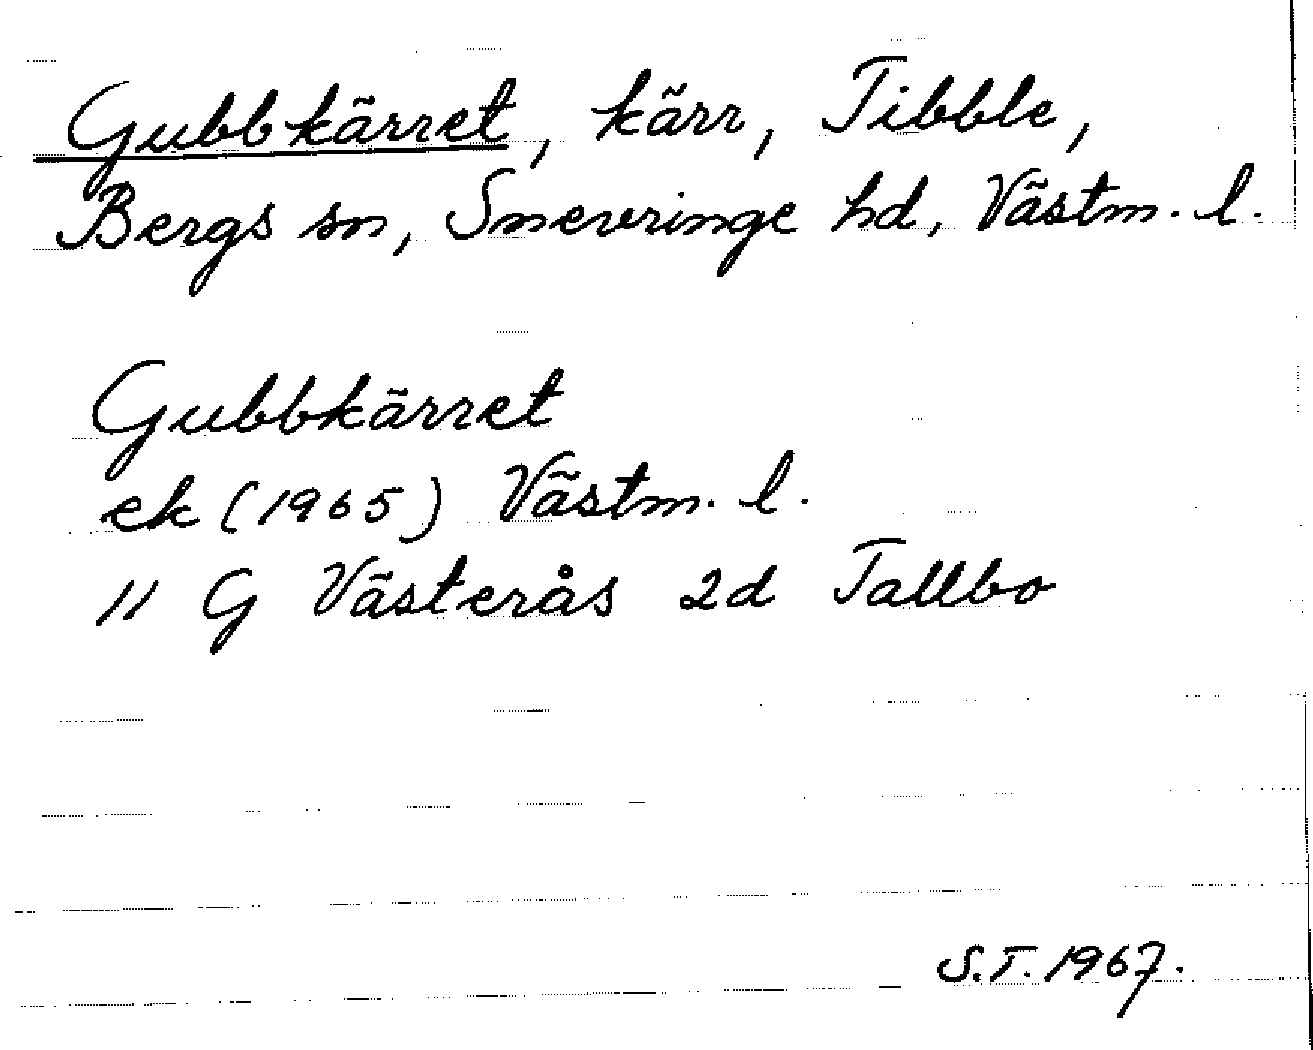 Gubbkärret, kärr, Tibble,
Bergs sn, Snevringe hd, Västm. l.
Gubbkärret
ek (1965) Västm. l.
11 G Västerås 2d Tallbo
S.T. 1967.